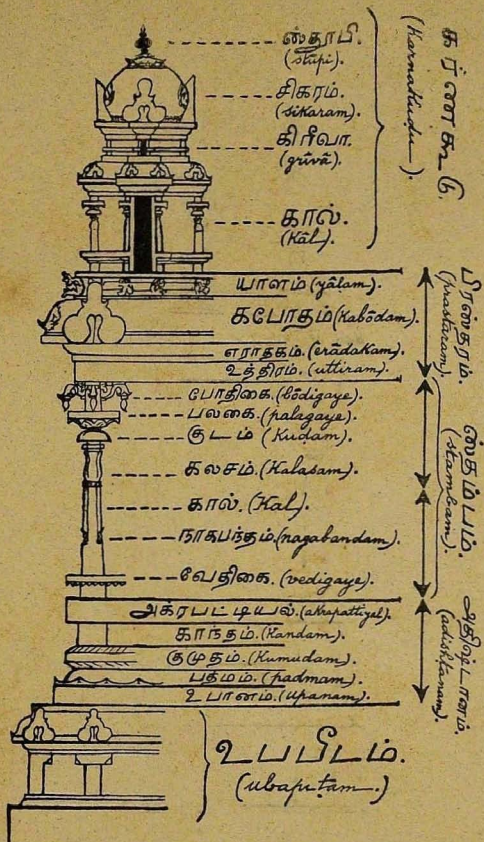 ஸ்தூபி.
(stūpi).
சிகரம்.
(sikaram).
கிரீவா.
(grîvâ).
கால்.
(Kâl).
கர்ணகூடு.
(Karnakudu).
யாளம் (yâlam).
கபோதம் (Kabōdam)
எராதகம். (erādakam).
உத்திரம். (uttiram).
பிரஸ்தரம்.
(prastaram).
போதிகை. (bōdigaye).
பலகை. (palagaye).
குடம் (Kudam).
கலசம். (Kalasam).
கால். (Kal).
நாகபந்தம். (nagabandam).
வேதிகை. (vedigaye).
ஸ்தம்பம்.
(stambam).
அக்ரபட்டியல். (akrapattiyal).
காந்தம். (Kandam).
குமுதம். (Kumudam).
பத்மம். (padmam).
உபானம். (upanam).
அதிஷ்டானம்.
(adishtanam).
உபபீடம்.
(ubapiṭam.)